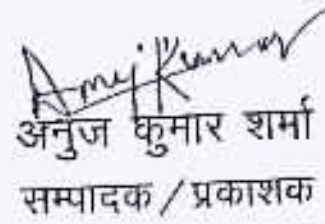 Anuj Kumar
अनुज कुमार शर्मा
सम्पादक / प्रकाशक